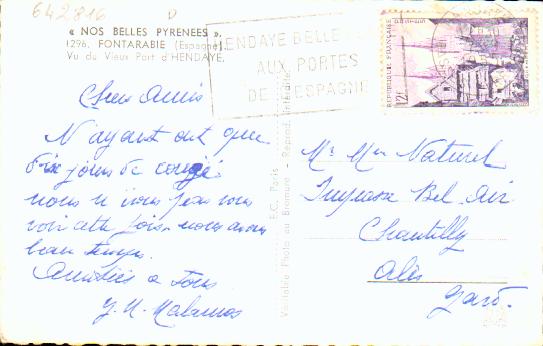 642816
D
« NOS BELLES PYRENEES ».
1296. FONTARABIE (Espagne)
Vu du Vieux Port d'HENDAYE.
HENDAYE BELLE
AUX PORTES
DE L'ESPAGNE
REPUBLIQUE FRANÇAISE
12F
Chers Amis
N'ayant eut que
dix jours de congé
nous n'irons pas vous
voir cette fois. nous avons
beau temps.
Amitiés a tous
E.C. Paris
Véritable Photo au Bromure - Reprod. interdite
Mr Mme Naturel
Impasse Bel Air
Chantilly
Alès
Gard.